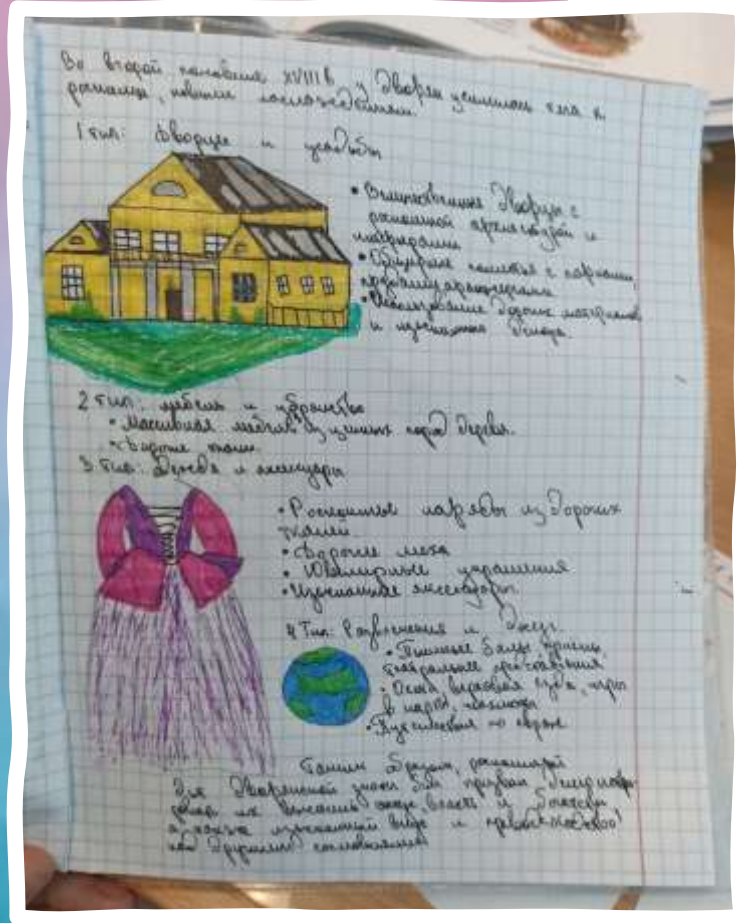 Во второй половине XVIII в. у дворян усилилась тяга к
роскоши, новым наслаждениям.
1 тип: Дворцы и усадьбы
• Величественные дворцы с
роскошной архитектурой и
интерьерами
• Обширные поместья с парками,
• Использование дорогих материалов
и изысканного декора.
2 тип: мебель и убранство
• Массивная мебель из ценных пород дерева.
• Дорогие ткани.
3 тип: Одежда и аксессуары
• Роскошные наряды из дорогих
тканей
• Дорогие меха
• Ювелирные украшения
• Изысканные аксессуары.
4 Тип: Развлечения и досуг.
• Пышные балы, приемы,
театральные представления
• Охота, верховая езда, игры
в карты,
• Путешествия по европе
Таким образом, роскошь
для дворянской знати был призван
их высокий статус, власть и богатство
а также изысканный вкус и превосходство
над другими сословиями